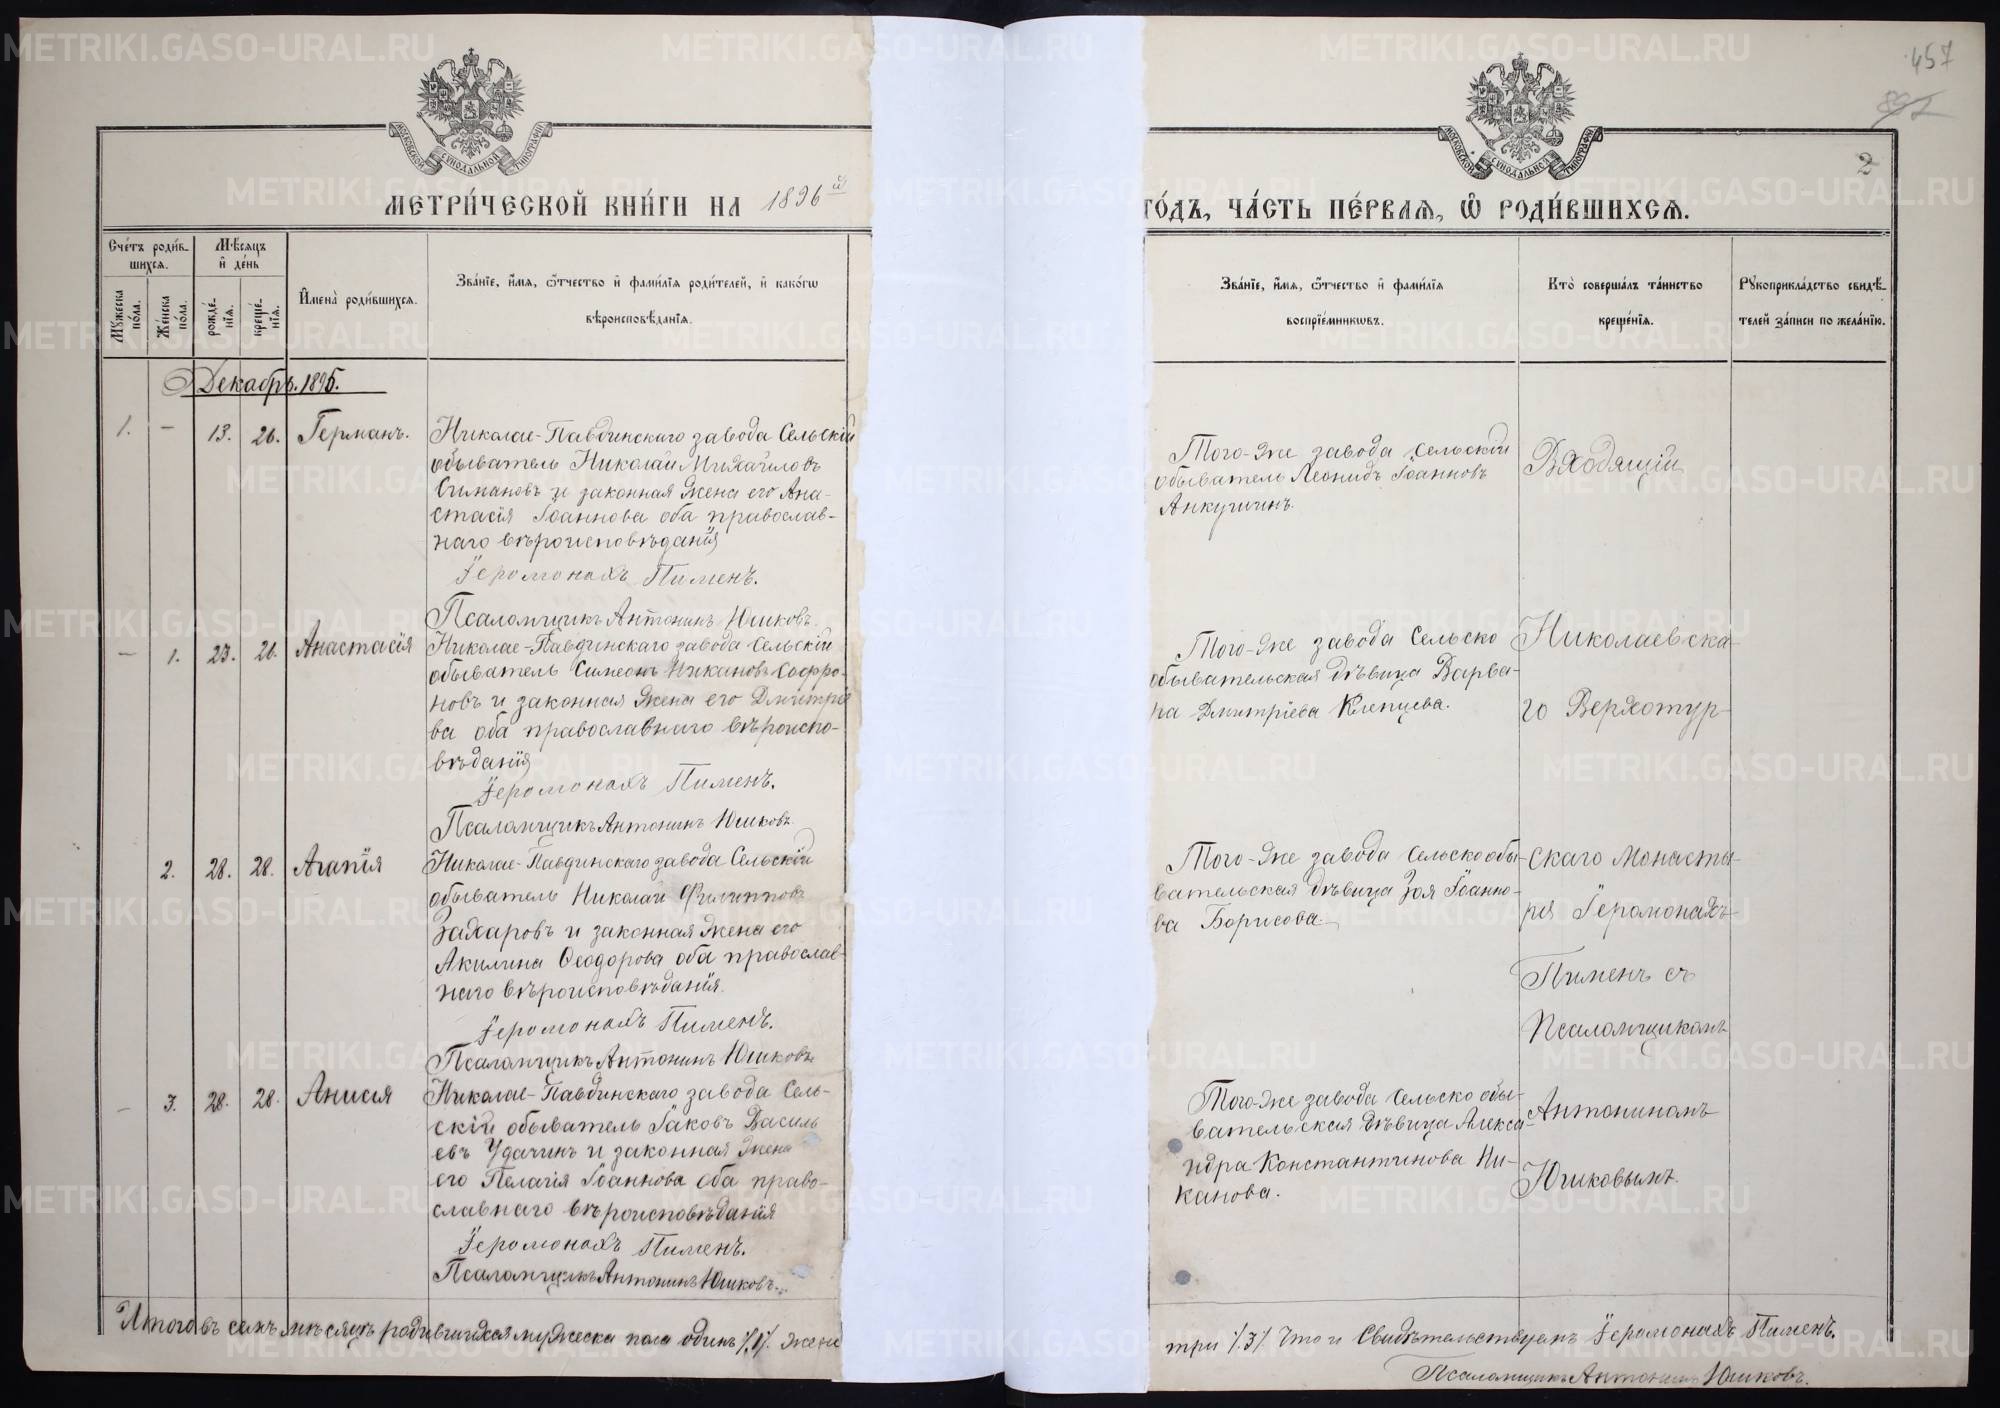 457
892
2
МОСКОВСКОЙ СѴНОДАЛЬНОЙ ТИПОГРАФІИ
МОСКОВСКОЙ СѴНОДАЛЬНОЙ ТИПОГРАФІИ
МЕТРИ́ЧЕСКОЙ КНИ́ГИ НА 1896 й
ГО́ДЪ, ЧА́СТЬ ПЕ́РВАѦ, Ѡ҆ РОДИ́ВШИХСѦ.
Сче́тъ роди́в-
шихсѧ.
Мꙋжеска по́ла.
Же́нска по́ла.
Мѣ́сѧцъ
и҆ де́нь
рожде́-
нїѧ.
креще́-
нїѧ.
И҆мена̀ роди́вшихсѧ.
Зва́нїе, и҆́мѧ, ѻ҆́тчество и҆ фами́лїѧ роди́телей, и҆ како́гѡ
вѣроисповѣ́данїѧ.
Зва́нїе, и҆́мѧ, ѻ҆́тчество и҆ фами́лїѧ
воспрїе́мникѡвъ.
Кто̀ соверша́лъ та́инство
креще́нїѧ.
Рꙋкоприкла́дство свидѣ́-
телей за́писи по жела́нїю.
Декабрь. 1895.
1. — 13. 26. Германъ.
Николае-Павдинскаго завода Сельскій
обыватель Николай Михайловъ
Симановъ и законная жена его Ана-
стасія Іоаннова оба православ-
наго вѣроисповѣданія
Іеромонахъ Пименъ.
Псаломщикъ Антонинъ Юшковъ.
Того-же завода сельскій
обыватель Леонидъ Іоанновъ
Анкушинъ.
— 1. 23. 26. Анастасія
Николае-Павдинскаго завода Сельскій
обыватель Симеонъ Никановъ Сафро-
новъ и законная жена его Дмитріе
ва оба православнаго вѣроиспо-
вѣданія
Іеромонахъ Пименъ.
Псаломщикъ Антонинъ Юшковъ.
Того-же завода Сельско
обывательская дѣвица Варва-
ра Дмитріева Клепцева.
2. 28. 28. Агапія
Николае-Павдинскаго завода Сельскій
обыватель Николай Филипповъ
Захаровъ и законная жена его
Акилина Ѳеодорова оба православ-
наго вѣроисповѣданія.
Іеромонахъ Пименъ.
Псаломщикъ Антонинъ Юшковъ
Того-же завода Сельскообы-
вательская дѣвица Зоя Іоанно-
ва Борисова.
— 3. 28. 28. Анисія
Николае-Павдинскаго завода Сель-
скій обыватель Іаковъ Василь
евъ Удачинъ и законная жена
его Пелагія Іоаннова оба право-
славнаго вѣроисповѣданія
Іеромонахъ Пименъ.
Псаломщикъ Антонинъ Юшковъ.
Того-же завода Сельско обы-
вательская дѣвица Алекса-
ндра Константинова Ни-
канова.
Входящій
Николаевска-
го Верхотур-
скаго Монасты-
ря Іеромонахъ
Пименъ съ
Псаломщикомъ
Антониномъ
Юшковымъ.
Итого въ семъ мѣсяцѣ родившихся мужеска пола одинъ /.1/. жене
три /.3/. Что и Свидѣтельствуемъ Іеромонахъ Пименъ.
Псаломщикъ Антонинъ Юшковъ.
METRIKI.GASO-URAL.RU